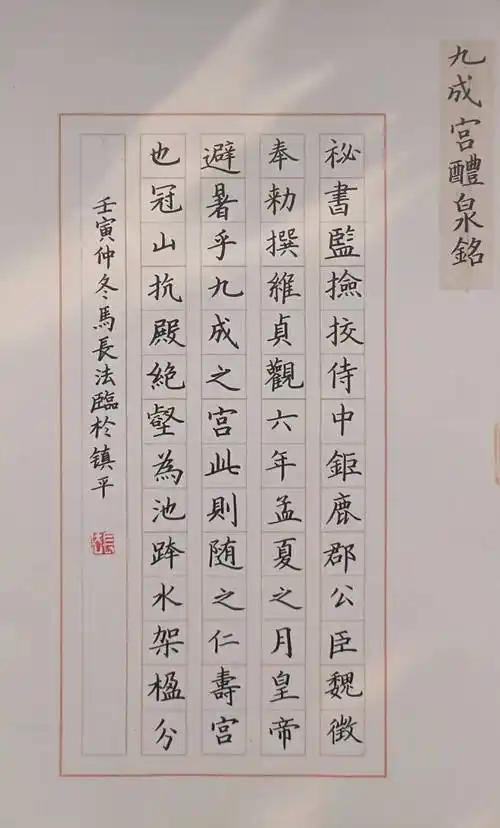 九成宮醴泉銘
秘書監撿挍侍中鉅鹿郡公臣魏徵
奉勑撰維貞觀六年孟夏之月皇帝
避暑乎九成之宮此則随之仁壽宮
也冠山抗殿絕壑為池跨水架楹分
壬寅仲冬馬長法臨於镇平